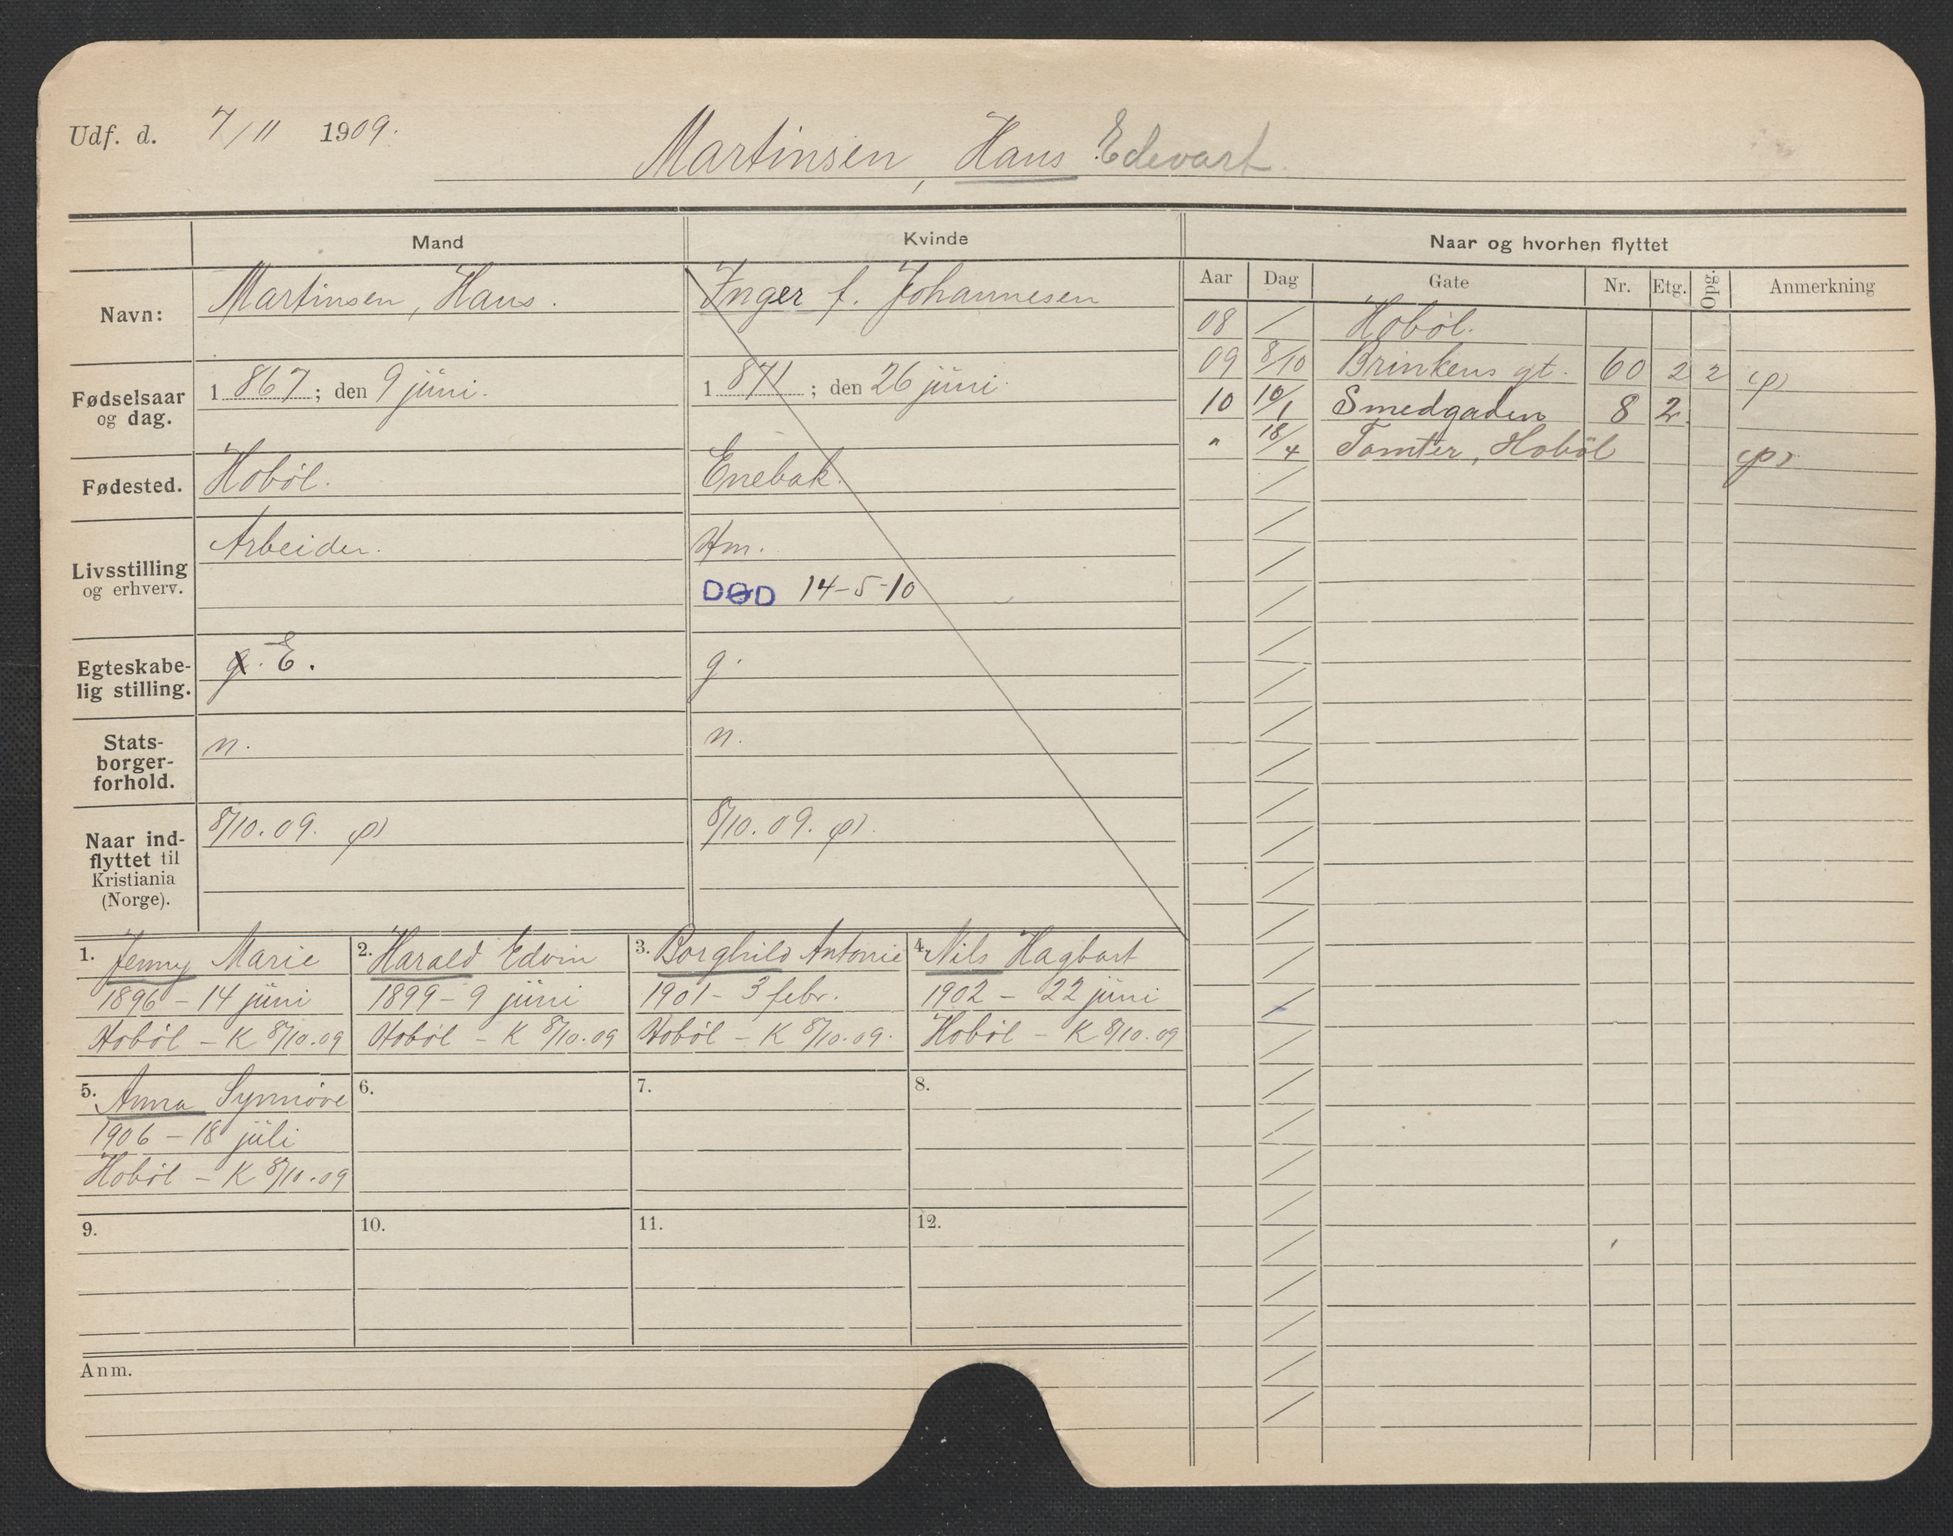 Udf. d. 7/11 1909.
Martinsen, Hans Edevart
Mand
Kvinde
Naar og hvorhen flyttet
Aar Dag Gate Nr. Etg. Opg. Anmerkning
Navn: Martinsen, Hans. Inger f. Johannesen
08 / Hobøl.
09 8/10 Brinkens gt. 60 2 2 (p)
Fødselsaar og dag. 1867; den 9 juni. 1871; den 26 juni.
10 10/1 Smedgaden 8 2
" 18/4 Tomter, Hobøl (p)
Fødested. Hobøl. Enebak.
Livsstilling og erhverv. Arbeider. Hm.
DØD 14-5-10
Egteskabe-
lig stilling. g. E. g.
Stats-
borger-
forhold. n. n.
Naar ind-
flyttet til
Kristiania
(Norge). 8/10.09. (p) 8/10.09. (p).
1. Jenny Marie
1896 - 14 juni
Hobøl - K 8/10.09
2. Harald Edvin
1899 - 9 juni
Hobøl - K 8/10.09
3. Borghild Antonie
1901 - 3 febr.
Hobøl - K 8/10.09.
4. Nils Hagbart
1902 - 22 juni
Hobøl - K 8/10.09
5. Anna Synnøve
1906 - 18 juli
Hobøl - K 8/10.09
6.
7.
8.
9.
10.
11.
12.
Anm.